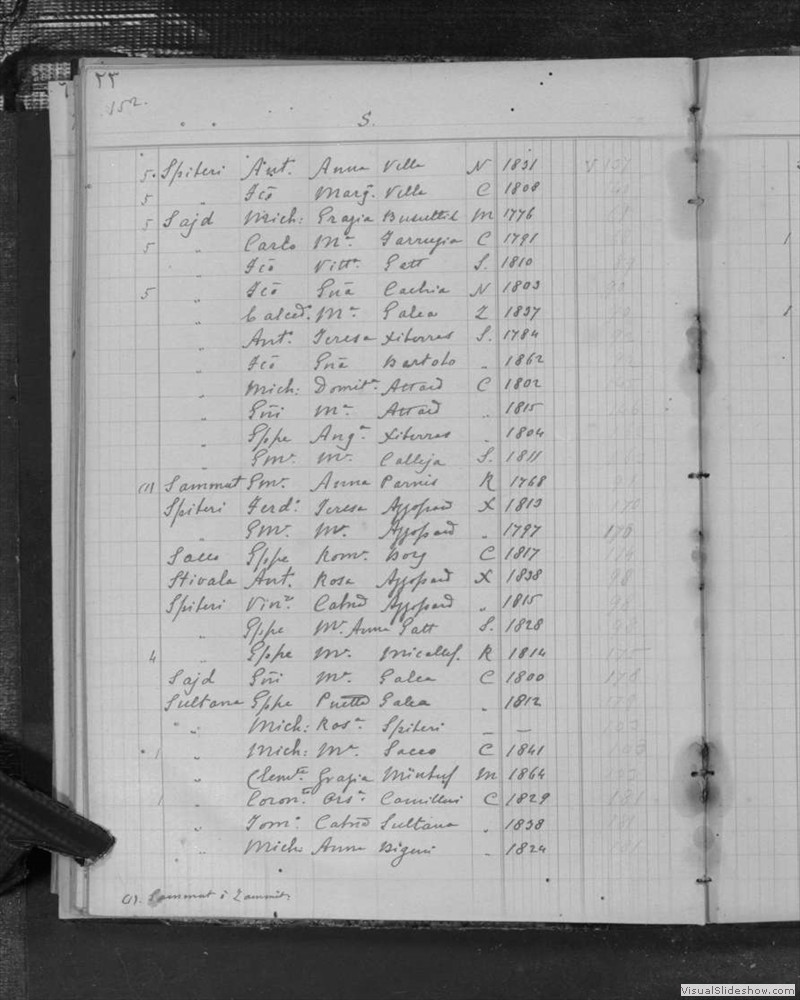 ٢٢
152.
S.
5. Spiteri Ant. Anna Vella N 1831 V 157
5 " Icō Marg. Vella C 1808
5 Sajd Mich: Grazia Busuttil M 1776
5 " Carlo Mª Farrugia C 1791
" Icō Vittª Gatt S. 1810
5 " Icō Gnā Cachia N 1803
" Calced. Mª Galea Z 1837
" Antº Teresa Xiberras S. 1784
" Icō Gnā Bartolo " 1862
" Mich: Domitª Attard C 1802
" Gñi Mª Attard " 1815
" Gppe Angª Xiberras " 1804
" Gmª Mª Calleja S. 1811
(1) Sammut Gmª Anna Parnis R 1768
Spiteri Ferdº Teresa Azzopard X 1813
" Gmª Mª Azzopard " 1797 170
Sacco Gppe Romª Borg C 1817
Stivala Ant. Rosa Azzopard X 1838
Spiteri Vinª Catnā Azzopard " 1815
" Gppe Mª Anna Gatt S. 1828
4 " Gppe Mª Micallef R 1814 175
Sajd Gñi Mª Galea C 1800 176
Sultana Gppe Galea " 1812
" Mich: Rosª Spiteri — —
1 " Mich: Mª Sacco C 1841
" Clemte Grazia Mintuf M 1864
1 " Coronª Orsª Camilleri C 1829 181
" Tomº Catnā Sultana " 1838
" Mich: Anna Bigeni " 1824
(1). Sammut ò Zammit
VisualSlideshow.com